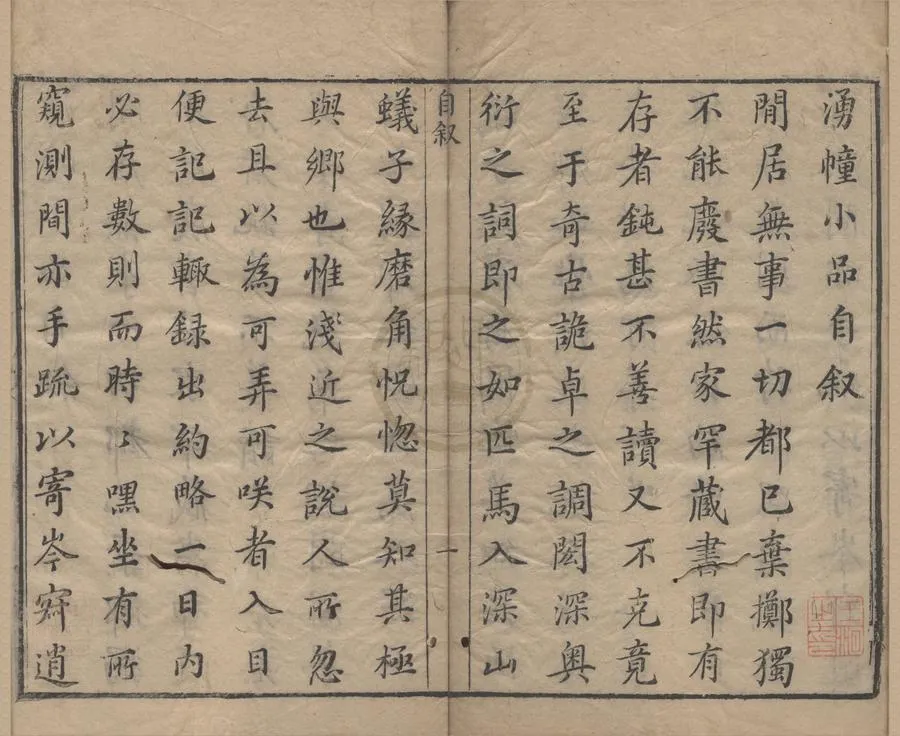 湧幢小品自叙
閒居無事一切都已棄擲獨
不能廢書然家罕藏書即有
存者鈍甚不善讀又不克竟
至于奇古詭卓之調閎深奥
衍之詞即之如匹馬入深山
自叙
一
蟻子縁磨角怳惚莫知其極
與鄉也惟淺近之說人所忽
去且以為可弄可咲者入目
便記記輙録出約略一日内
必存數則而時〻嘿坐有所
窺測間亦手疏以寄岑寂逍